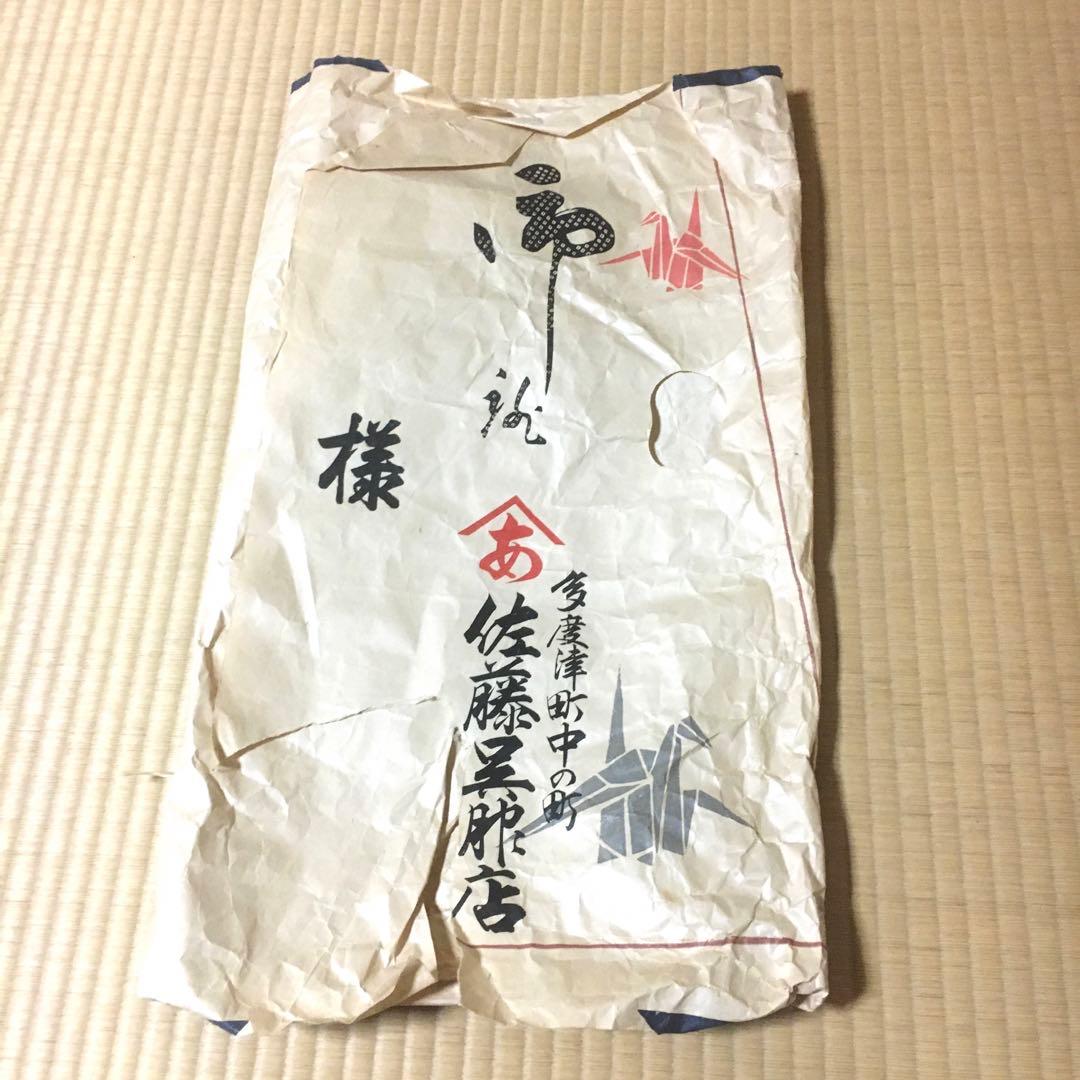 御誂
様
多度津町中の町
あ
佐藤呉服店